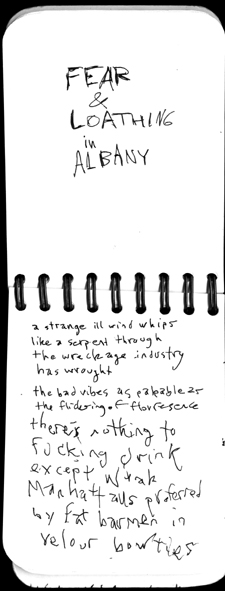 FEAR
&
LOATHING
in
ALBANY
a strange ill wind whips
like a serpent through
the wreckage industry
has wrought
the bad vibes as palpable as
the flickering of flouresence
there's nothing to
fucking drink
except weak
Manhattans preferred
by fat barmen in
velour bowties